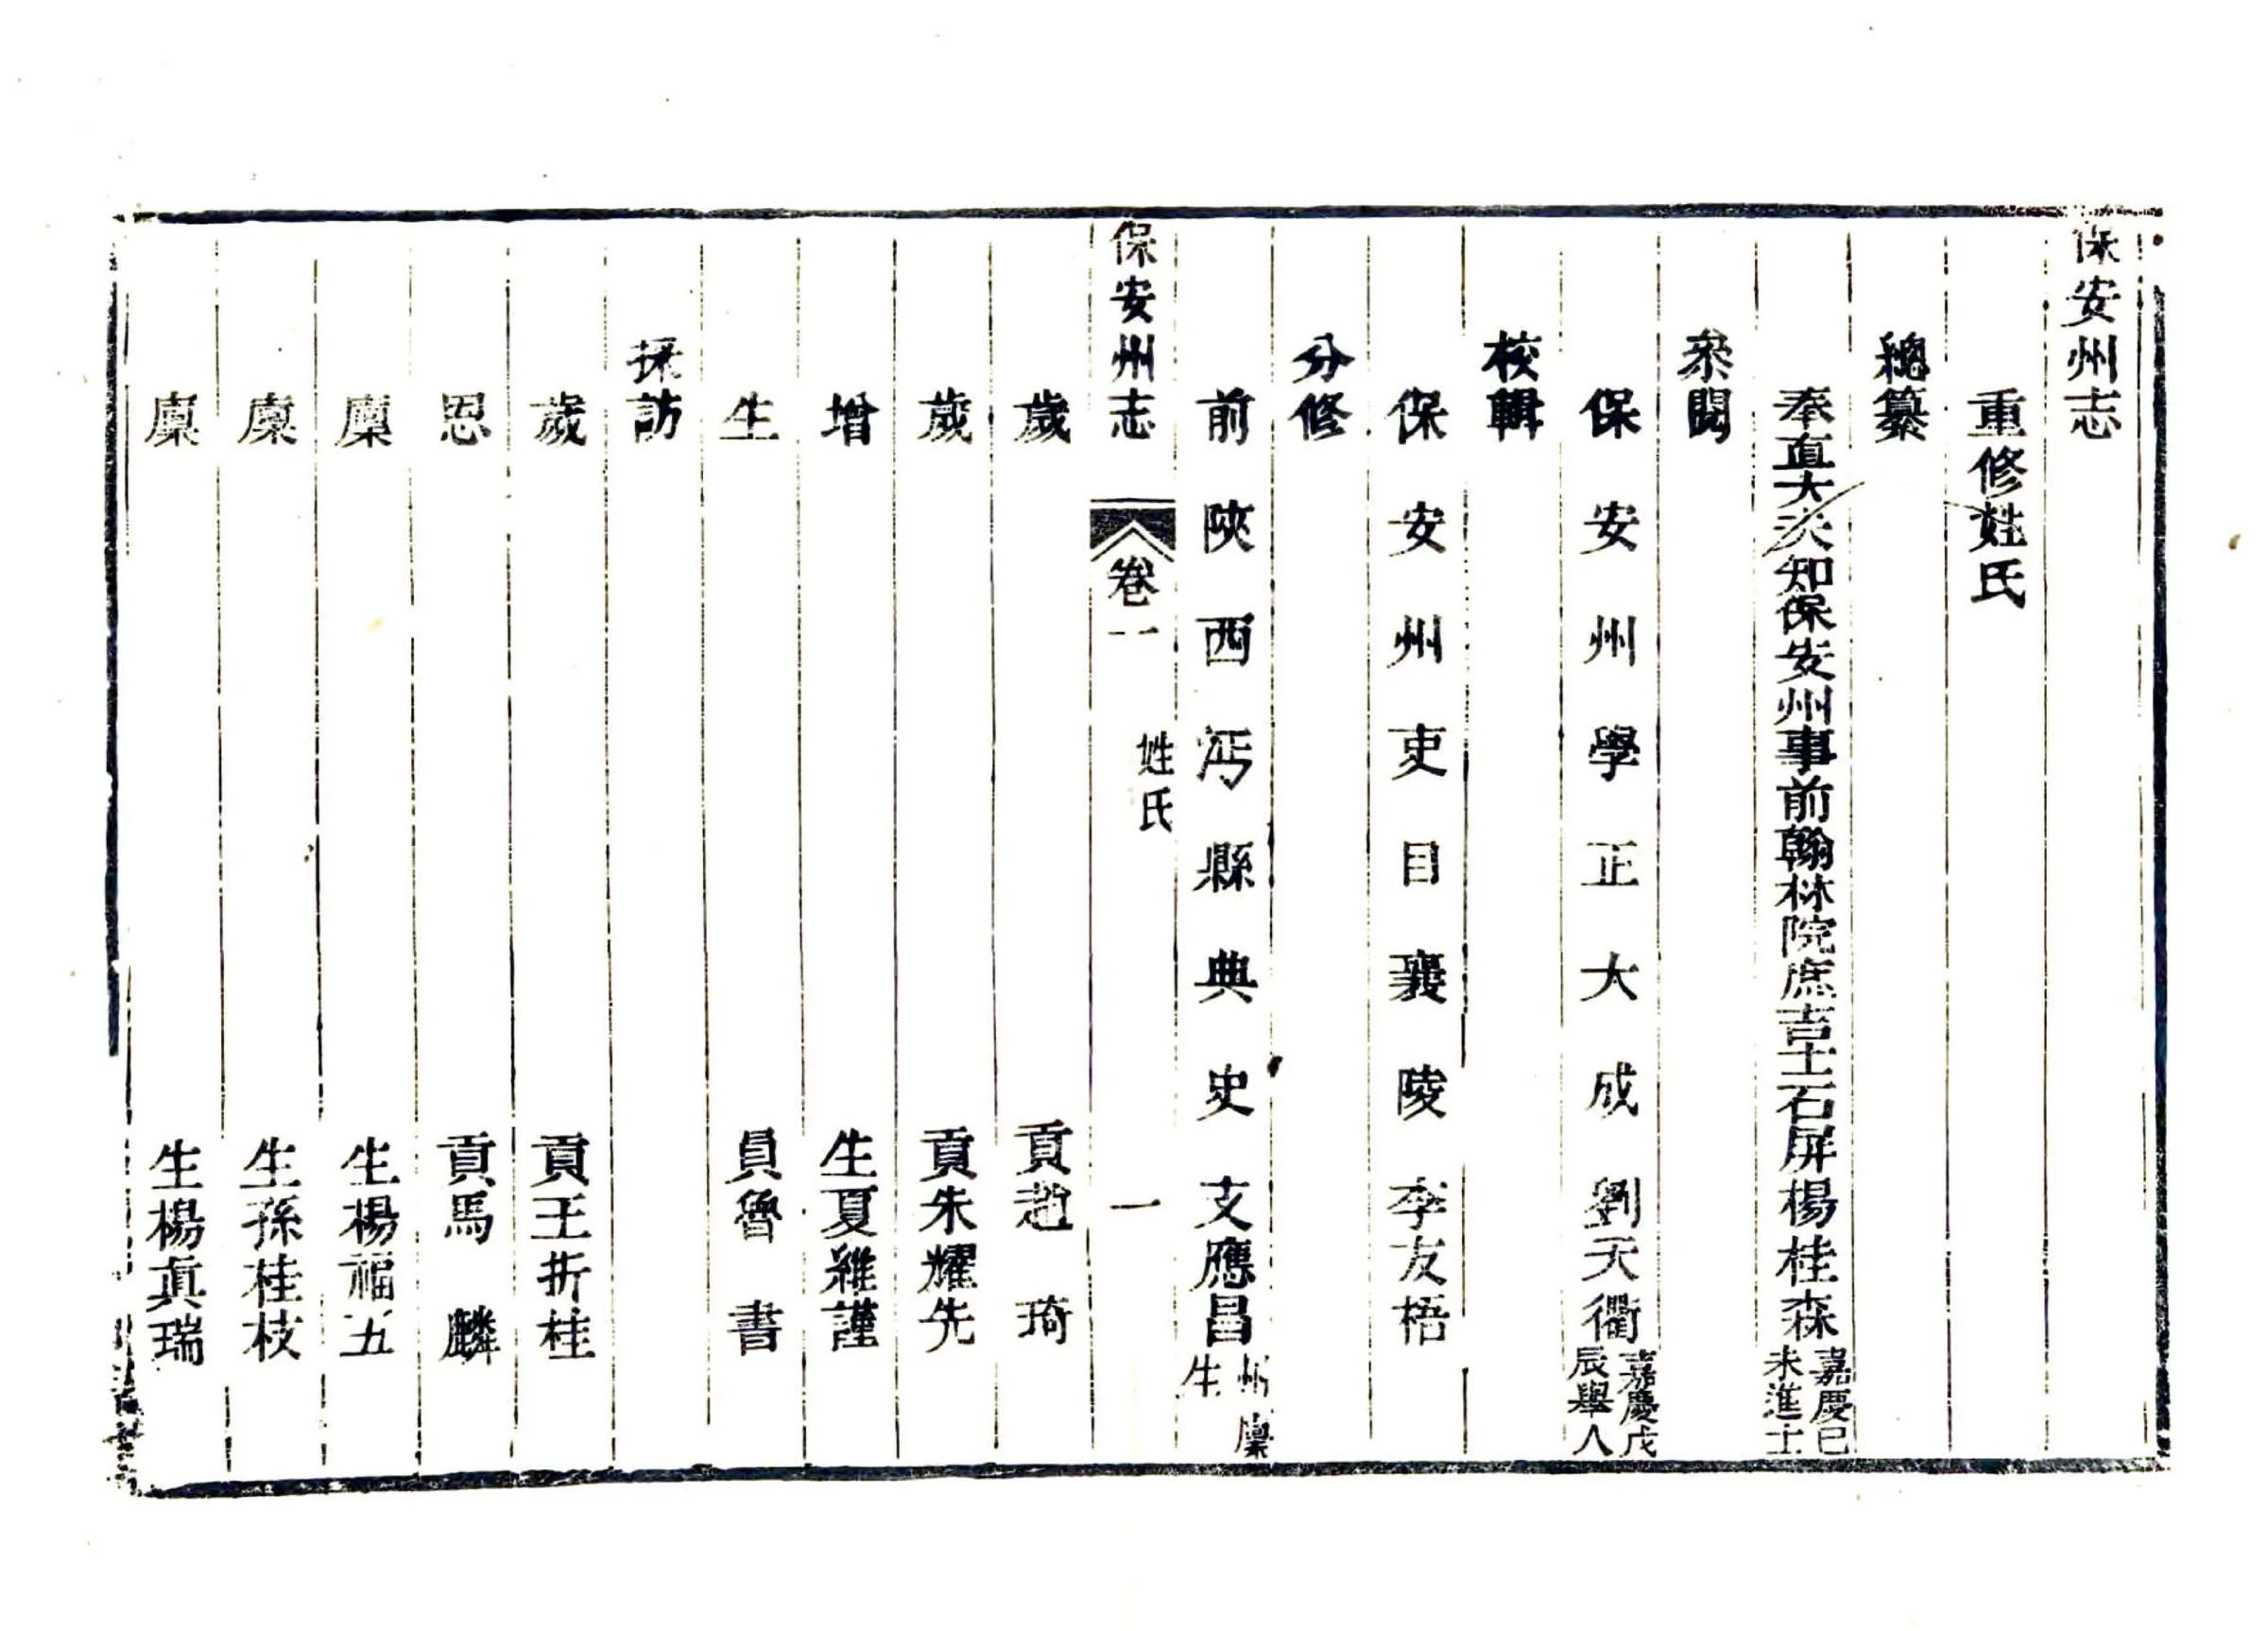 保安州志
重修姓氏
總纂
奉直大夫知保安州事前翰林院庶吉士石屏楊桂森嘉慶己未進士
叅閱
保安州學正大成劉天衢嘉慶戊辰舉人
校輯
保安州吏目襄陵李友梧
分修
前陝西沔縣典史支應昌州廩生
保安州志 卷一 姓氏 一
歲貢趙琦
歲貢朱耀先
增生夏維謹
生員魯書
採訪
歲貢王折桂
恩貢馬麟
廩生楊福五
廩生孫桂枝
廩生楊眞瑞